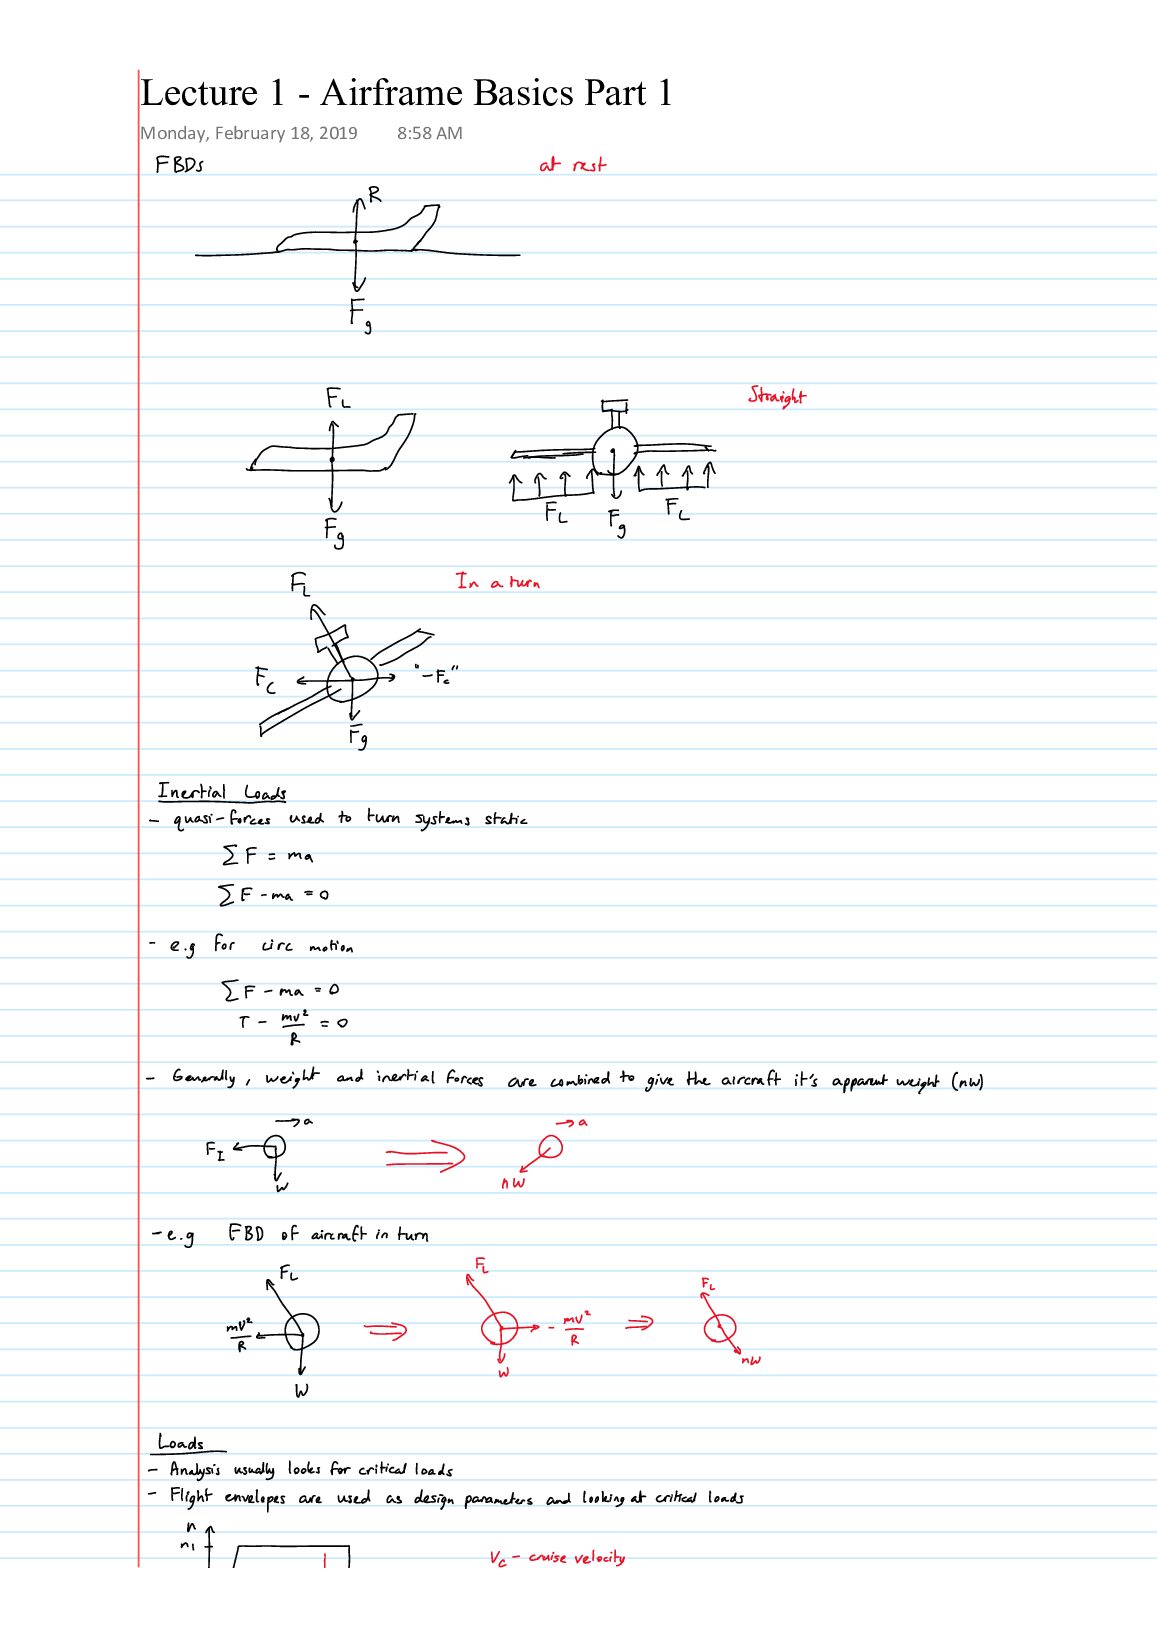 Lecture 1 - Airframe Basics Part 1
Monday, February 18, 2019 8:58 AM
FBDs at rest
R
Fg
FL Straight
Fg
FL Fg FL
FL In a turn
Fc "-Fc"
Fg
Inertial Loads
- quasi-forces used to turn systems static
∑F = ma
∑F - ma = 0
- e.g for circ motion
∑F - ma = 0
T - mv²/R = 0
- Generally, weight and inertial forces are combined to give the aircraft it's apparent weight (nW)
→a →a
FI
W nW
- e.g FBD of aircraft in turn
FL FL FL
mv²/R ⇒ - mv²/R ⇒
W W nW
Loads
- Analysis usually looks for critical loads
- Flight envelopes are used as design parameters and looking at critical loads
n
n1
Vc - cruise velocity